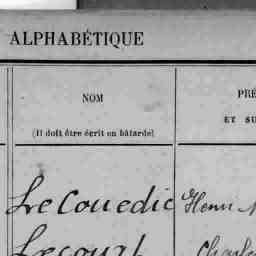 ALPHABÉTIQUE
NOM
PRÉ
ET SU
(Il doit être écrit en bâtarde)
Le Couedic Henri
Lecourt Charle